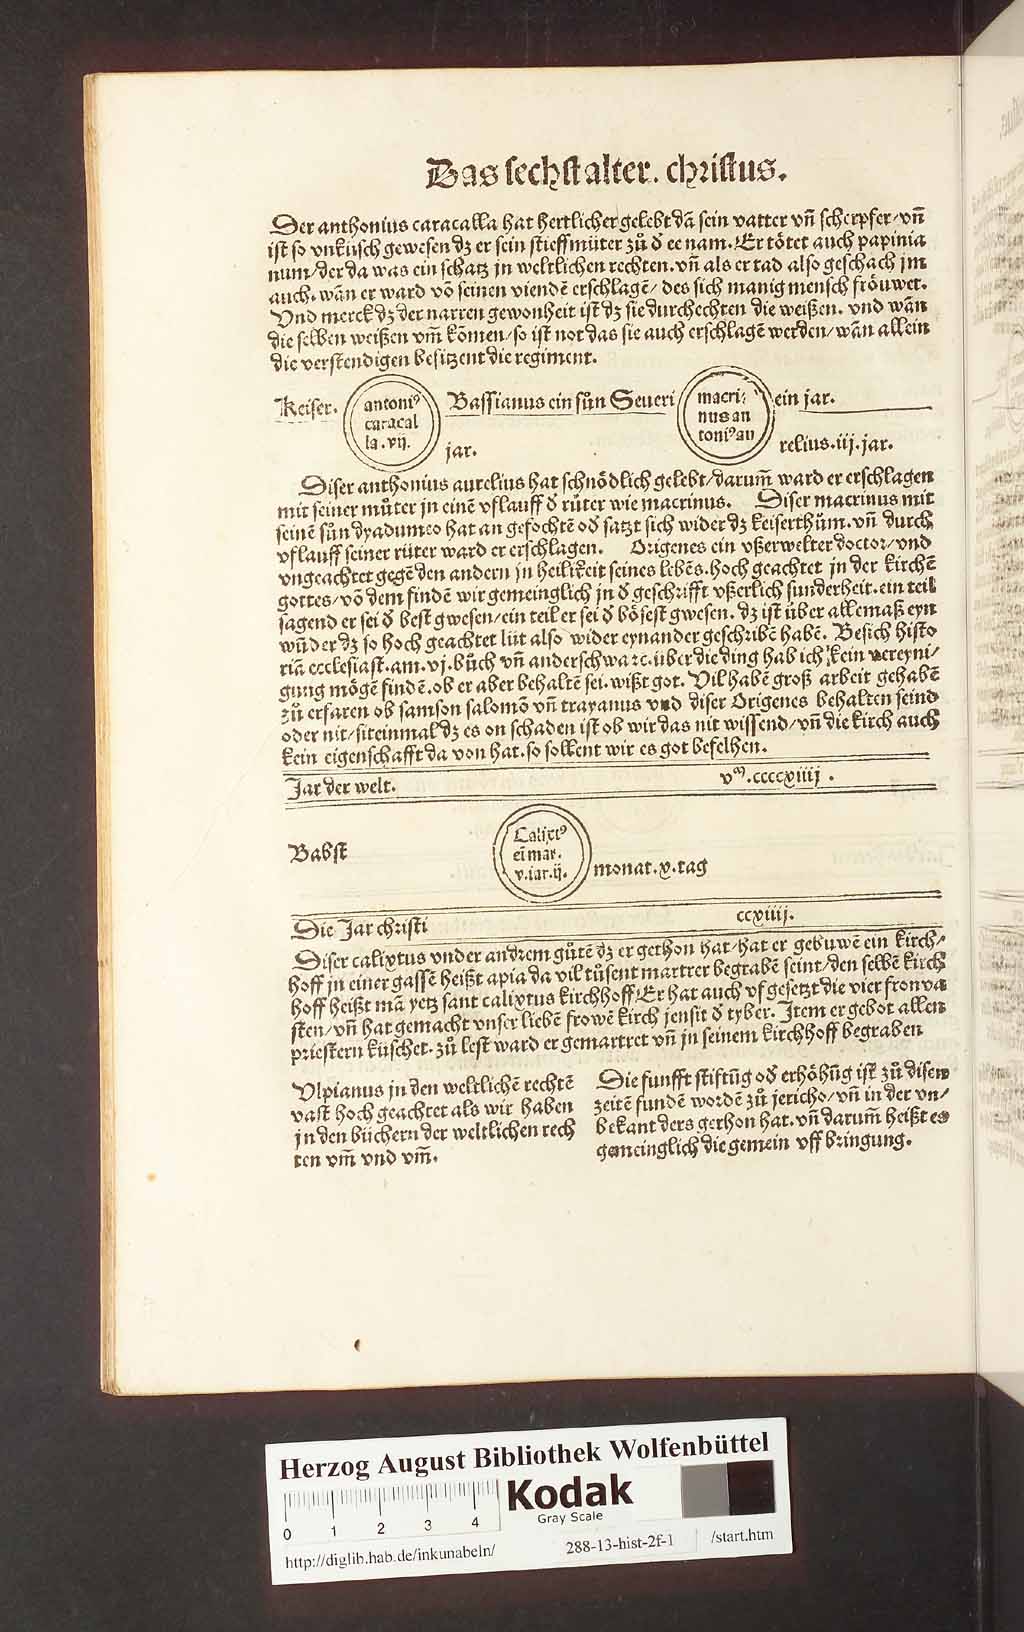 Das sechst alter. christus.
Der anthonius caracalla hat hertlicher gelebt dã sein vatter vñ scherpfer/vñ
ist so vnküsch gewesen dz er sein stieffmůter zů d̕ ee nam. Er tötet auch papinia
num/der da was ein schatz jn weltlichen rechten. vñ als er tad also geschach jm
auch. wãn er ward võ seinen viendẽ erschlagẽ/ des sich manig mensch fröuwet.
Vnd merck dz der narren gewonheit ist dz sie durchechten die weißen. vnd wãn
die selben weißen vm̃ kõmen/so ist not das sie auch erschlagẽ werden/wãn allein
die verstendigen besitzent die regiment.
Keiser.
antoniꝰ
caracal
la. vij.
Bassianus ein sůn Seueri
jar.
macri⸗
nus an
toniꝰ au
ein jar.
relius. iij. jar.
Diser anthonius aurelius hat schnödlich gelebt/darum̃ ward er erschlagen
mit seiner můter jn einẽ vflauff d̕ rüter wie macrinus. Diser macrinus mit
seinẽ sůn dyadumeo hat an gefochtẽ od̕ satzt sich wider dz keiserthům. vñ durch
vflauff seiner rüter ward er erschlagen. Origenes ein vßerwelter doctor/vnd
vngeachtet gegẽ den andern jn heilikeit seines lebẽs. hoch geachtet jn der kirchẽ
gottes/võ dem findẽ wir gemeinglich jn d̕ geschrifft vßerlich sunderheit. ein teil
sagend er sei d̕ best gwesen/ein teil er sei d̕ bösest gwesen. dz ist über allemaß eyn
wũder dz so hoch geachtet lüt also wider eynander geschribẽ habẽ. Besich histo
riã ecclesiast. am. vj. bůch vñ anderschwa ꝛc. über die ding hab ich kein vereyni/
gung mögẽ findẽ. ob er aber behaltẽ sei. wißt got. Vil habẽ groß arbeit gehabẽ
zů erfaren ob samson salomõ vñ trayanus vnd diser Origenes behalten seind
oder nit/siteinmal dz es on schaden ist ob wir das nit wissend/vñ die kirch auch
kein eigenschafft da von hat. so sollent wir es got befelhen.
Jar der welt.
vᵐ. ccccxiiij.
Babst
Calixtꝰ
eĩ mar.
v. iar. ij.
monat. x. tag
Die Jar christi
ccxiiij.
Diser calixtus vnder andrem gůtẽ dz er gethon hat/hat er gebuwẽ ein kirch/
hoff jn einer gassẽ heißt apia da vil tusent martrer begrabẽ seint/den selbẽ kirch
hoff heißt mã yetz sant calixtus kirchhoff/Er hat auch vf gesetzt die vier fronva
sten/vñ hat gemacht vnser liebẽ frowẽ kirch jensit d̕ tyber. Item er gebot allen
priestern küschet. zů lest ward er gemartret vñ jn seinem kirchhoff begraben
Vlpianus jn den weltlichẽ rechtẽ
vast hoch geachtet als wir haben
jn den büchern der weltlichen rech
ten vm̃ vnd vm̃.
Die funfft stiftũg od̕ erhöhũg ist zů disen
zeitẽ fundẽ wordẽ zů jericho/vñ in der vn/
bekant ders gethon hat. vñ darum̃ heißt es
gemeinglich die gemein vff bringung.
Herzog August Bibliothek Wolfenbüttel
0 1 2 3 4
Kodak
Gray Scale
http://diglib.hab.de/inkunabeln/
288-13-hist-2f-1
/start.htm